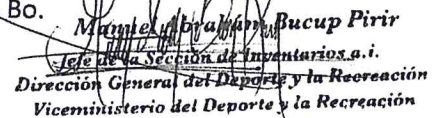 Bo.
Manuel Abraham Bucup Pirir
Jefe de la Sección de Inventarios a.i.
Dirección General del Deporte y la Recreación
Viceministerio del Deporte y la Recreación